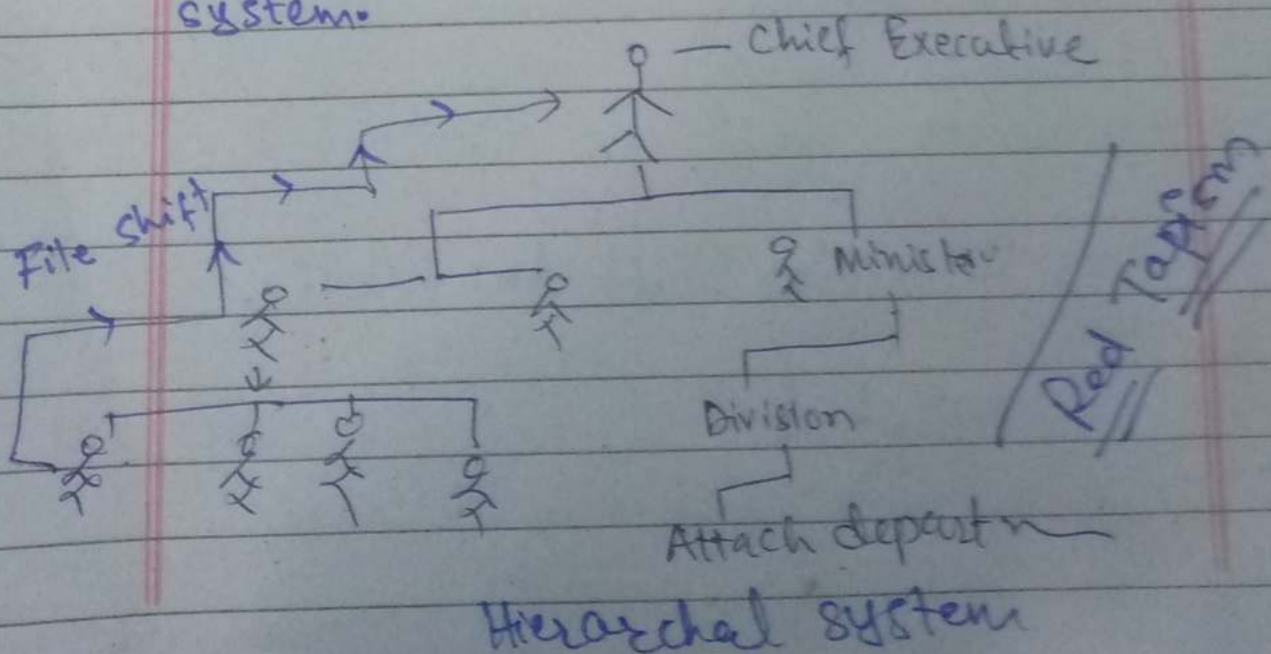 system.
Chief Executive
File shift
Minister
Red Tapism
Division
Attach departm
Hierarchal system